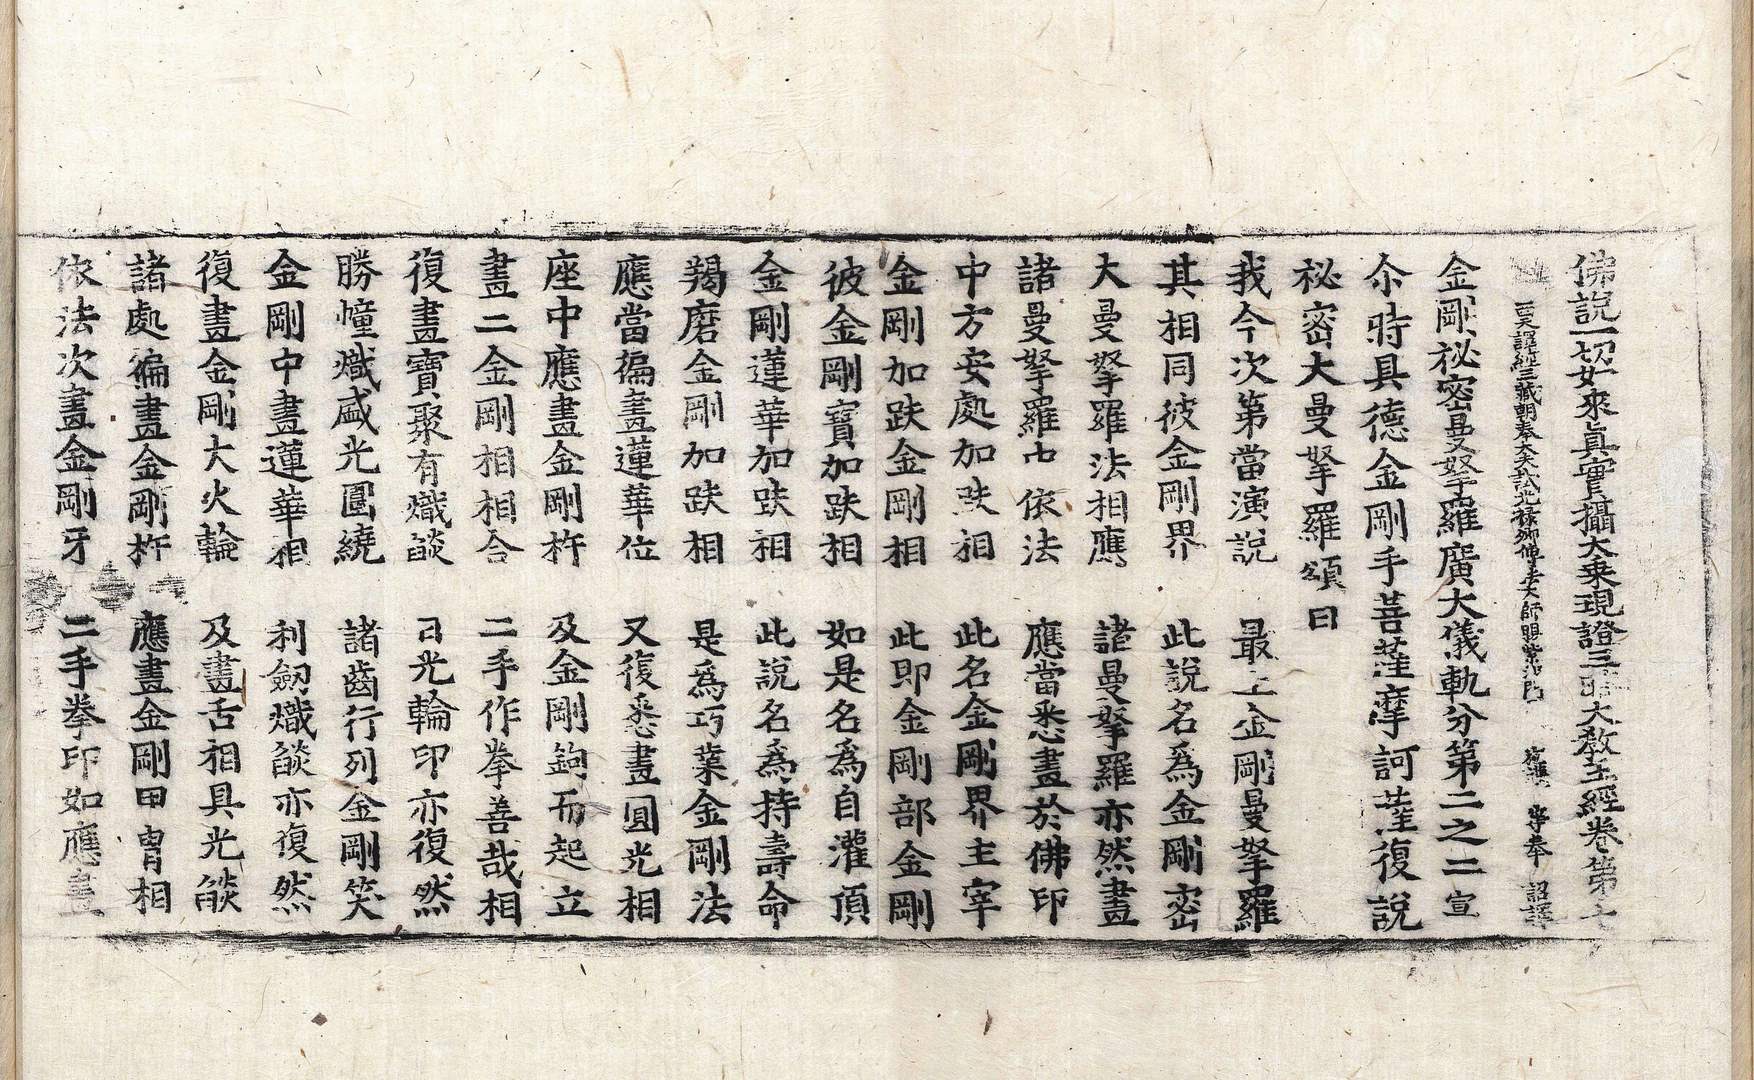 佛說一切如來真實攝大乗現證三昧大教王經卷第七
西天譯經三藏朝奉大夫試光祿卿傳法大師賜紫 施護 等奉 詔譯
金剛祕密曼拏羅廣大儀軌分第二之二 宣
尒時具德金剛手菩薩摩訶薩復說
祕密大曼拏羅頌曰
我今次第當演說 最上金剛曼拏羅
其相同彼金剛界 此說名為金剛密
大曼拏羅法相應 諸曼拏羅亦然畫
諸曼拏羅中依法 應當悉畫於佛印
中方安處加趺相 此名金剛界主宰
金剛加趺金剛相 此即金剛部金剛
彼金剛寶加趺相 如是名為自灌頂
金剛蓮華加趺相 此說名為持壽命
羯磨金剛加趺相 是為巧業金剛法
應當徧畫蓮華位 又復悉畫圓光相
座中應畫金剛杵 及金剛鉤而起立
畫二金剛相相合 二手作拳善哉相
復畫寶聚有熾燄 日光輪印亦復然
勝幢熾盛光圍繞 諸齒行列金剛笑
金剛中畫蓮華相 利劒熾燄亦復然
復畫金剛大火輪 及畫舌相具光燄
諸處徧畫金剛杵 應畫金剛甲胄相
依法次畫金剛牙 二手拳印如應畫